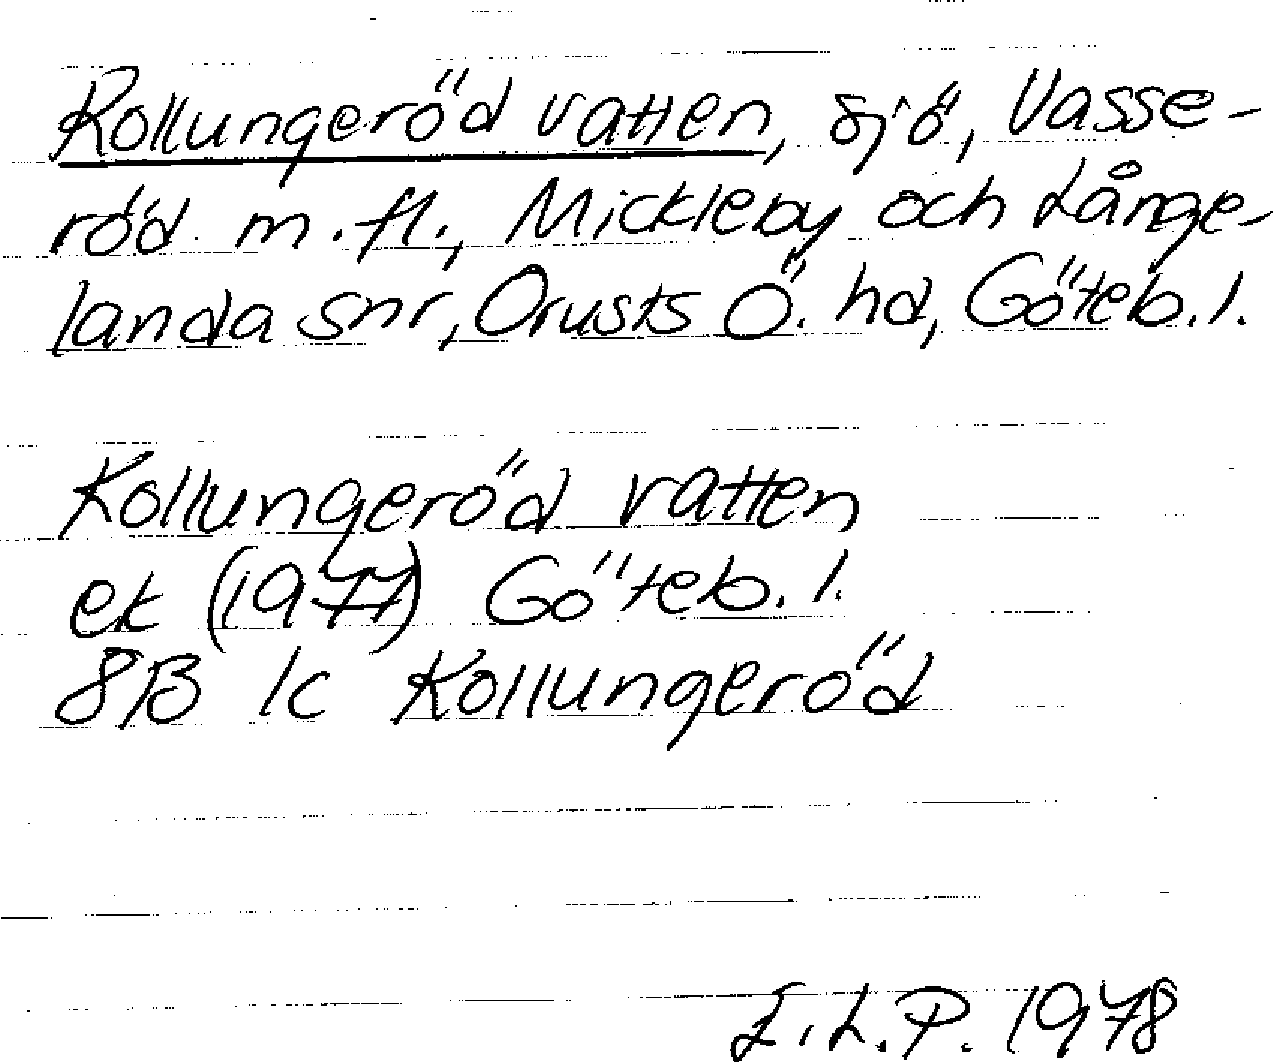 Kollungeröd vatten, sjö, Vasse-
röd m.fl., Mickleby och Långe-
landa snr, Orusts Ö. hd, Göteb.l.
Kollungeröd vatten
ek (1977) Göteb.l.
8B 1c Kollungeröd
L.P. 1978